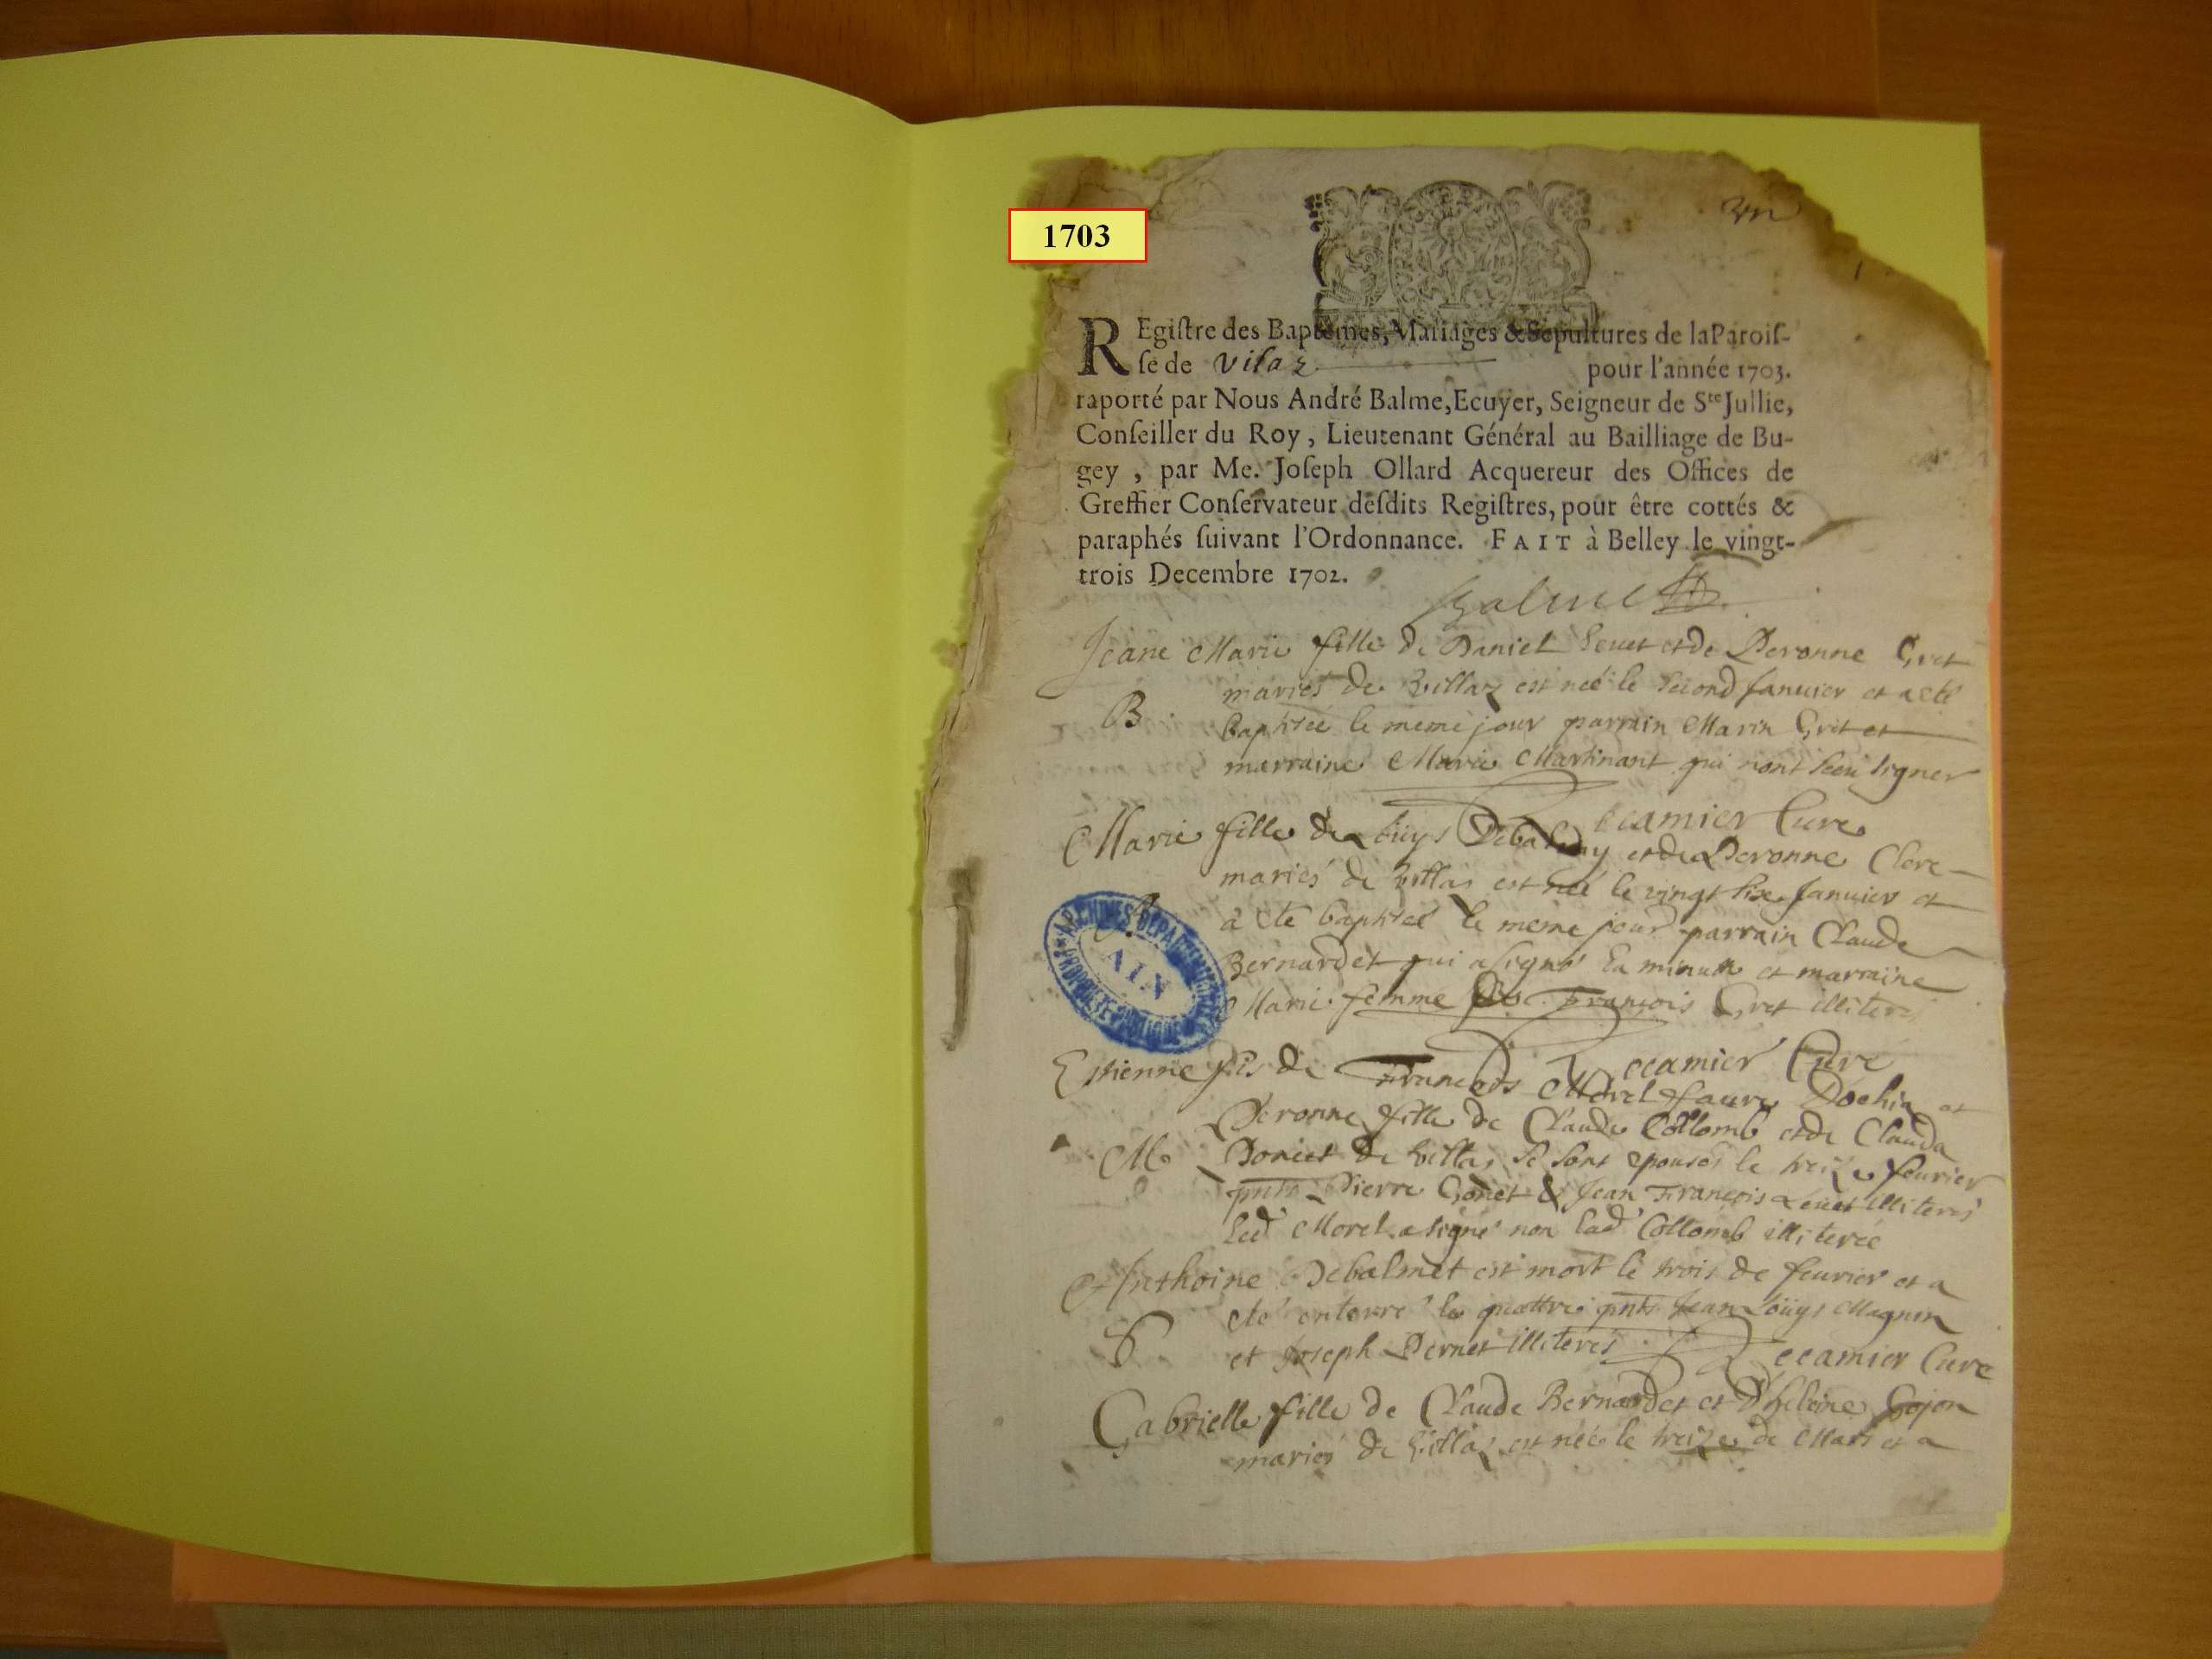 1703
REgiſtre des Baptêmes, Mariages & Sepultures de la Paroiſ-
ſe de Vilaz pour l'année 1703.
raporté par Nous André Balme, Ecuyer, Seigneur de Ste Jullie,
Conſeiller du Roy, Lieutenant Général au Bailliage de Bu-
gey, par Me. Joſeph Ollard Acquereur des Offices de
Greffier Conſervateur deſdits Regiſtres, pour être cottés &
paraphés ſuivant l'Ordonnance. FAIT à Belley le vingt-
trois Decembre 1702.
Balme
Jeane Marie fille de Daniel et de Peronne Gret
mariés de Villaz est neé le second Janvier et a eté
B. baptiseé le meme jour parrain Marin Gret et
marraine Marie Martinant qui nont sceu signer
Recamier Curé
Marie fille de Loüys et de Peronne Clerc
mariés de Villaz est neé le vingt six Janvier et
B. à eté baptiseé le meme jour parrain Claude
Bernardet qui a signé la minute et marraine
Marie femme de françois Gret illiteres
ARCHIVES DEPARTEMENTALES
AIN
PROPRIETE PUBLIQUE
Recamier Curé
Estienne fils de François Morel faure Dochia et
Peronne fille de Claude Collomb et de Clauda
M Poncet de Villaz se sont epousés le treize fevrier
pnts Pierre Gonet & Jean François illiterés
Led Morel a signé non lad Collomb illitereé
Anthoine Debalmet est mort le trois de fevrier et a
S eté enterré le quattre pnts Jean Loüys Magnin
et Joseph Pernet illiterés Recamier Curé
Gabrielle fille de Claude Bernardet et D'heleine Gojon
mariés de Villaz est neé le treize de Mars et a